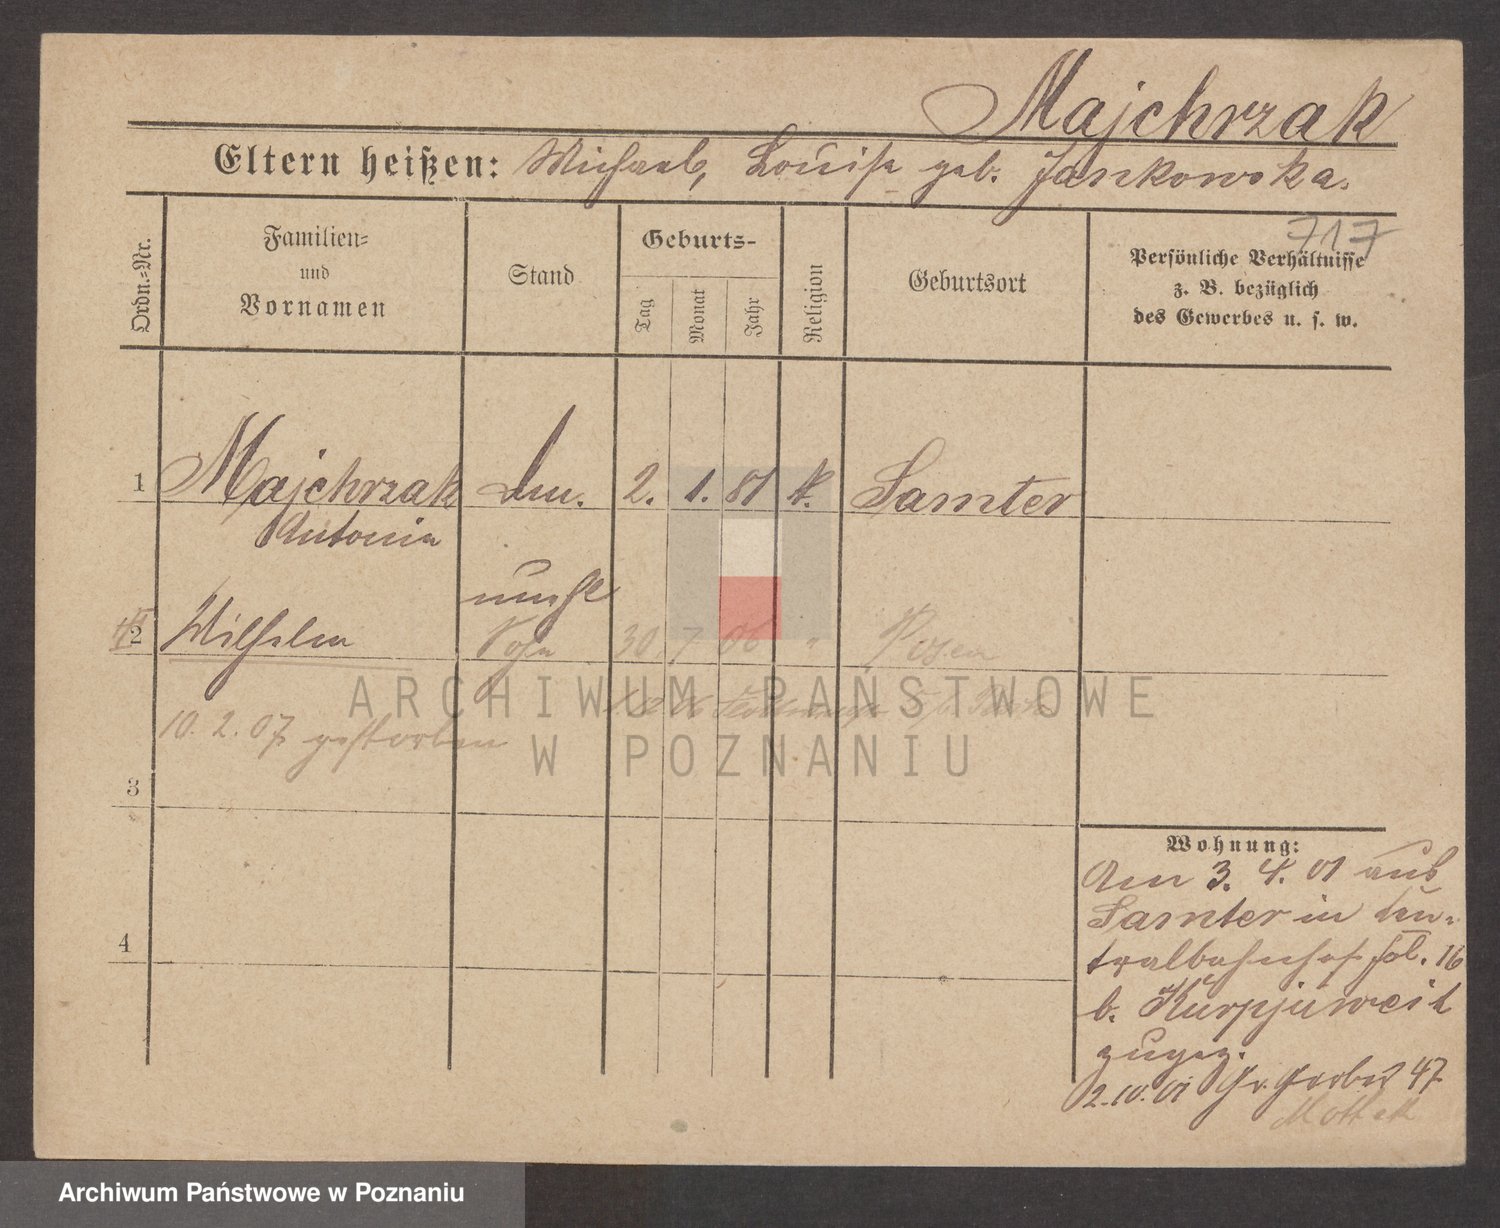 Majchrzak
Eltern heißen: Michael, Louise geb. Jankowska.
717
Ordn.-Nr.
Familien-
und
Vornamen
Stand
Geburts-
Tag
Monat
Jahr
Religion
Geburtsort
Persönliche Verhältnisse
z. B. bezüglich
des Gewerbes u. s. w.
1 Majchrzak 2. 1. 81 k. Samter
Antonia
unehl
2 Wilhelm Sohn 30. 7 06 " Posen
10. 2. 07 gestorben
ARCHIWUM PAŃSTWOWE
W POZNANIU
3
4
Wohnung:
Am 3. 4. 01 aus
Samter in Cen-
tralbahnhof fol. 16
b. Kurpjuweit
zugez.
2. 10. 01 Gr. Gerber 47
Mottek
Archiwum Państwowe w Poznaniu